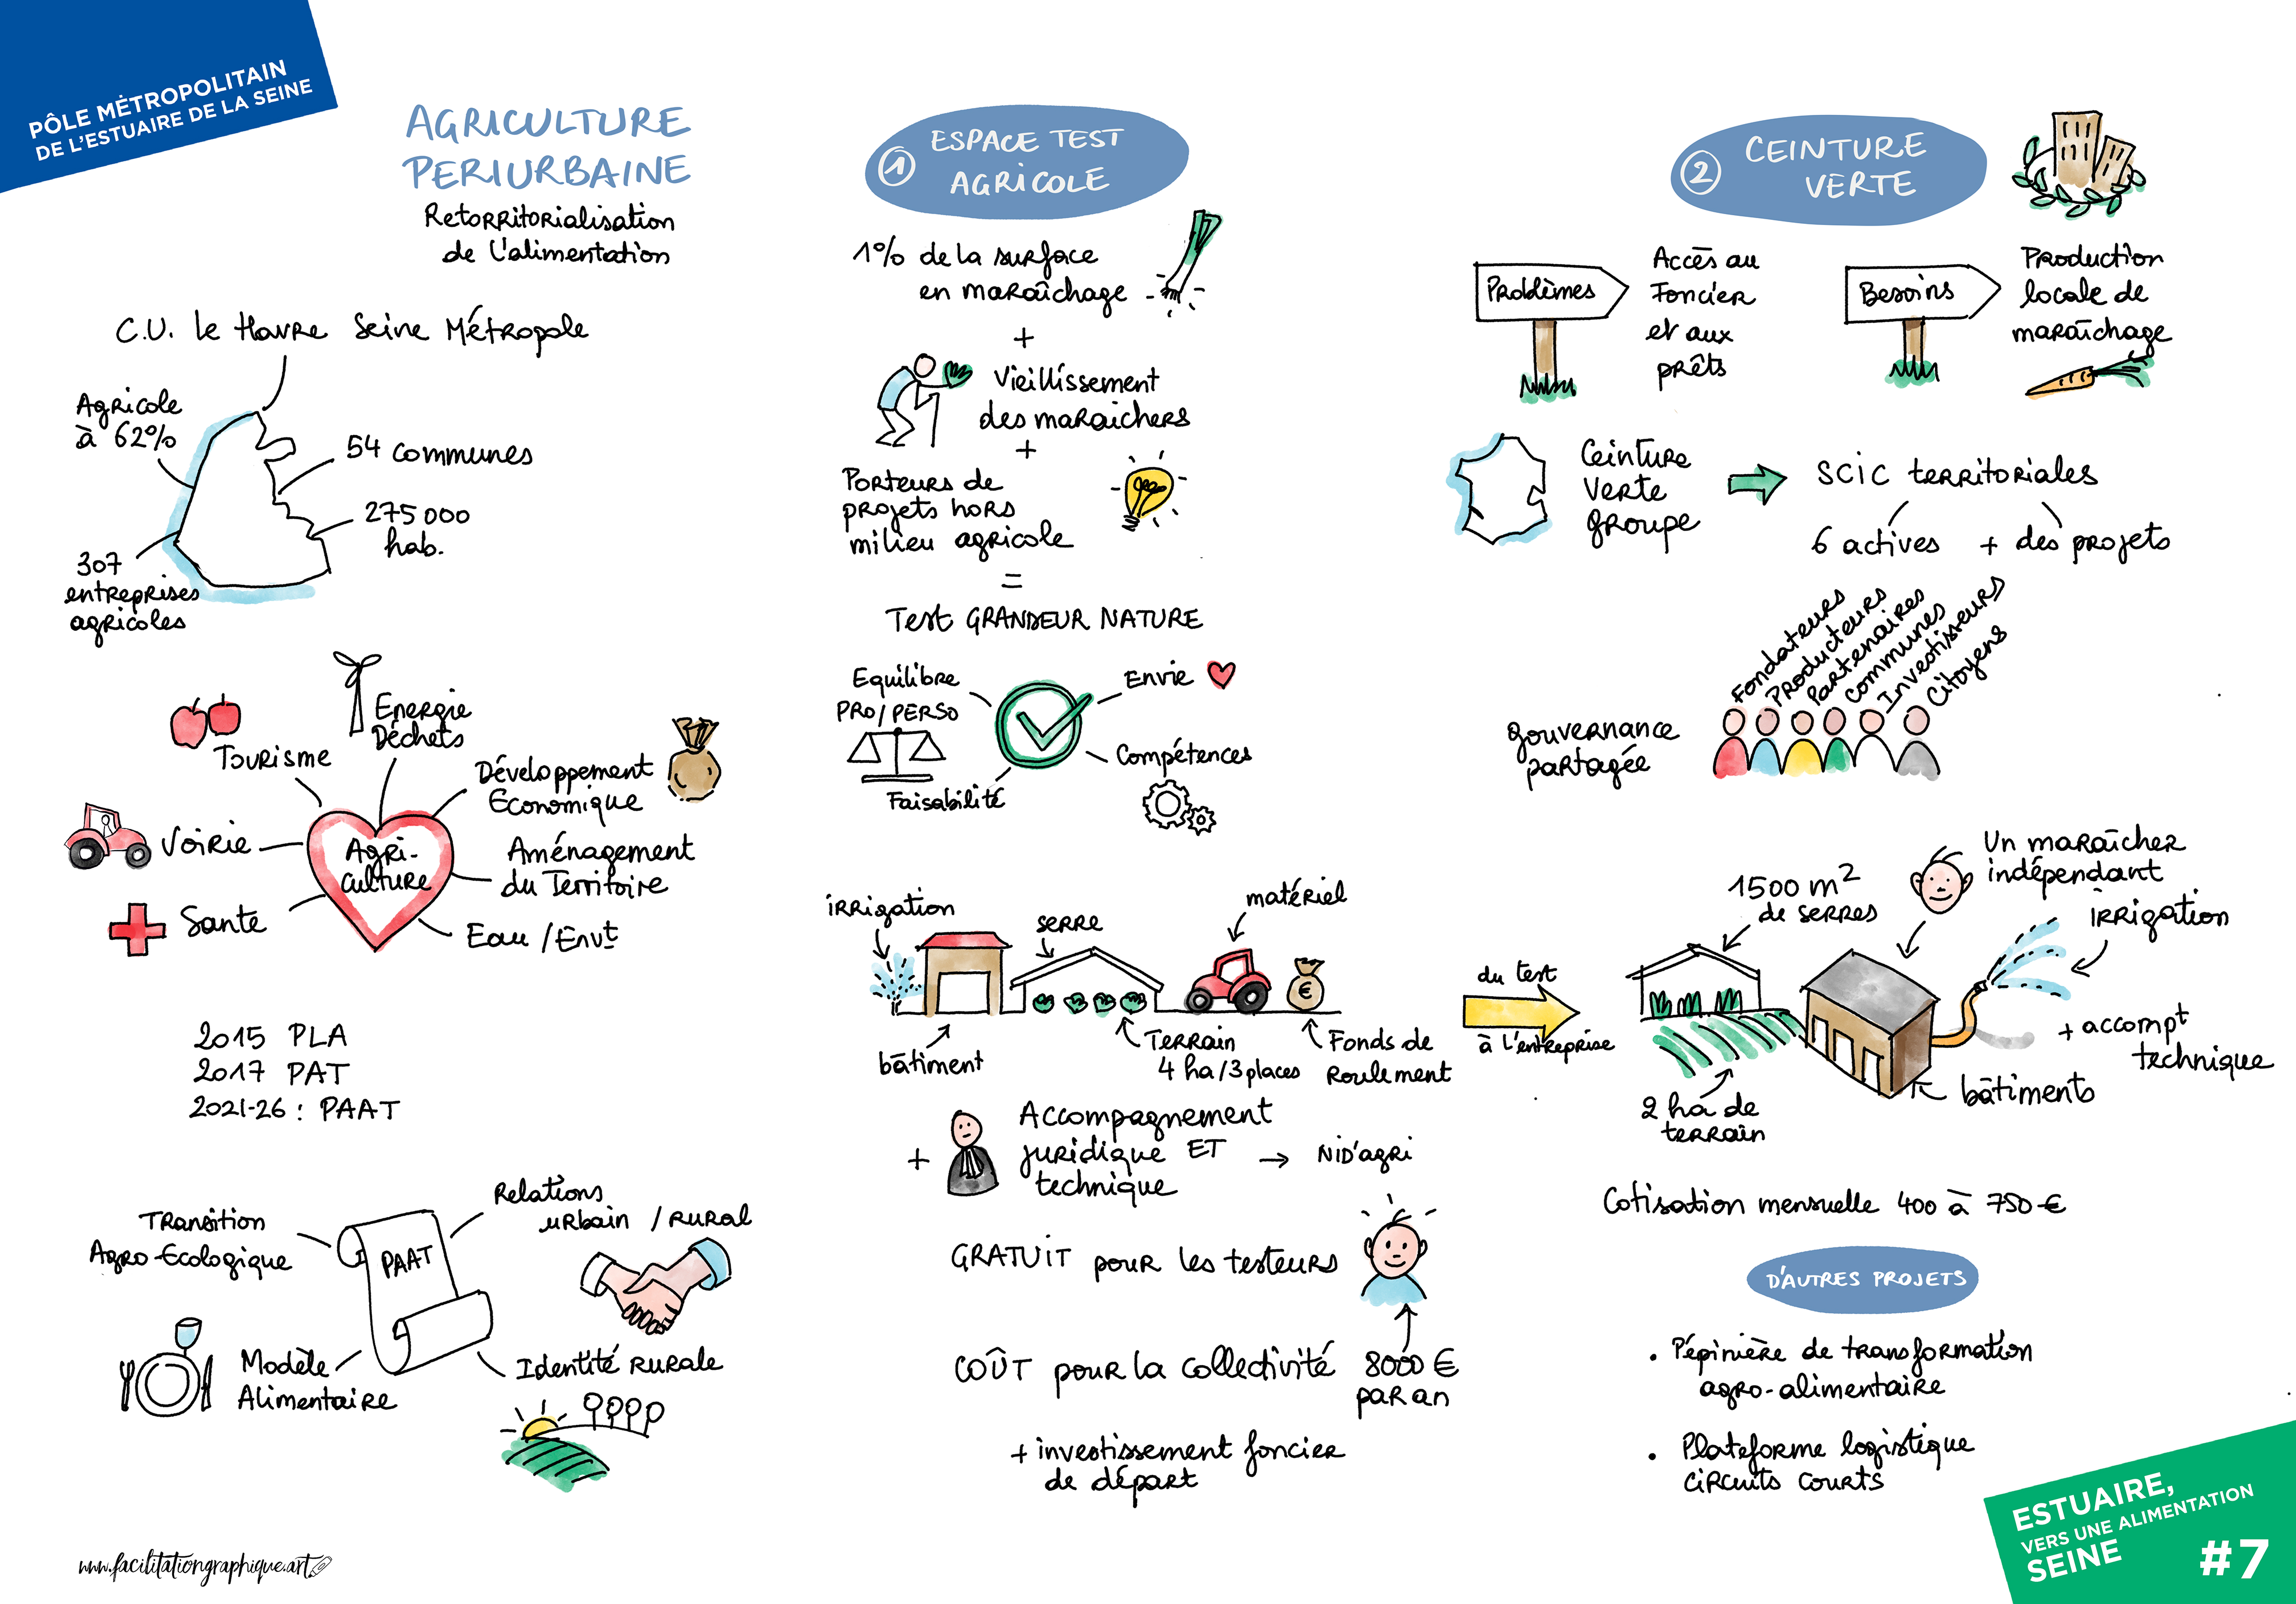 PÔLE MÉTROPOLITAIN
DE L'ESTUAIRE DE LA SEINE
AGRICULTURE
PERIURBAINE
Retorritorialisation
de l'alimentation
C.U. le Havre Seine Métropole
Agricole
à 62%
54 communes
275 000
hab.
307
entreprises
agricoles
Energie
Déchets
Tourisme
Développement
Economique
Voirie
Agri-
culture
Aménagement
du Territoire
Sante
Eau / Envt
2015 PLA
2017 PAT
2021-26 : PAAT
Transition
Agro-Ecologique
PAAT
Relations
urbain / rural
Modèle
Alimentaire
Identité rurale
www.facilitationgraphique.art
1 ESPACE TEST
AGRICOLE
1% de la surface
en maraîchage
+
Vieillissement
des maraichers
+
Porteurs de
projets hors
milieu agricole
=
Test GRANDEUR NATURE
Equilibre
PRO/PERSO
Envie
Compétences
Faisabilité
irrigation
serre
matériel
bâtiment
Terrain
4 ha/3 places
€
Fonds de
Roulement
+ Accompagnement
juridique ET
technique
→ NID'agri
GRATUIT pour les testeurs
COÛT pour la collectivité 8000 €
par an
+ investissement foncier
de départ
du test
à l'entreprise
2 CEINTURE
VERTE
Problèmes
Accès au
Foncier
et aux
prêts
Besoins
Production
locale de
maraîchage
Ceinture
Verte
Groupe
SCIC territoriales
6 actives + des projets
gouvernance
partagée
Fondateurs
Producteurs
Partenaires
Communes
Investisseurs
Citoyens
1500 m²
de serres
Un maraîcher
indépendant
irrigation
+ accompt
technique
bâtiments
2 ha de
terrain
Cotisation mensuelle 400 à 750 €
D'AUTRES PROJETS
• Pépinière de transformation
agro-alimentaire
• Plateforme logistique
circuits courts
ESTUAIRE,
VERS UNE ALIMENTATION
SEINE
#7